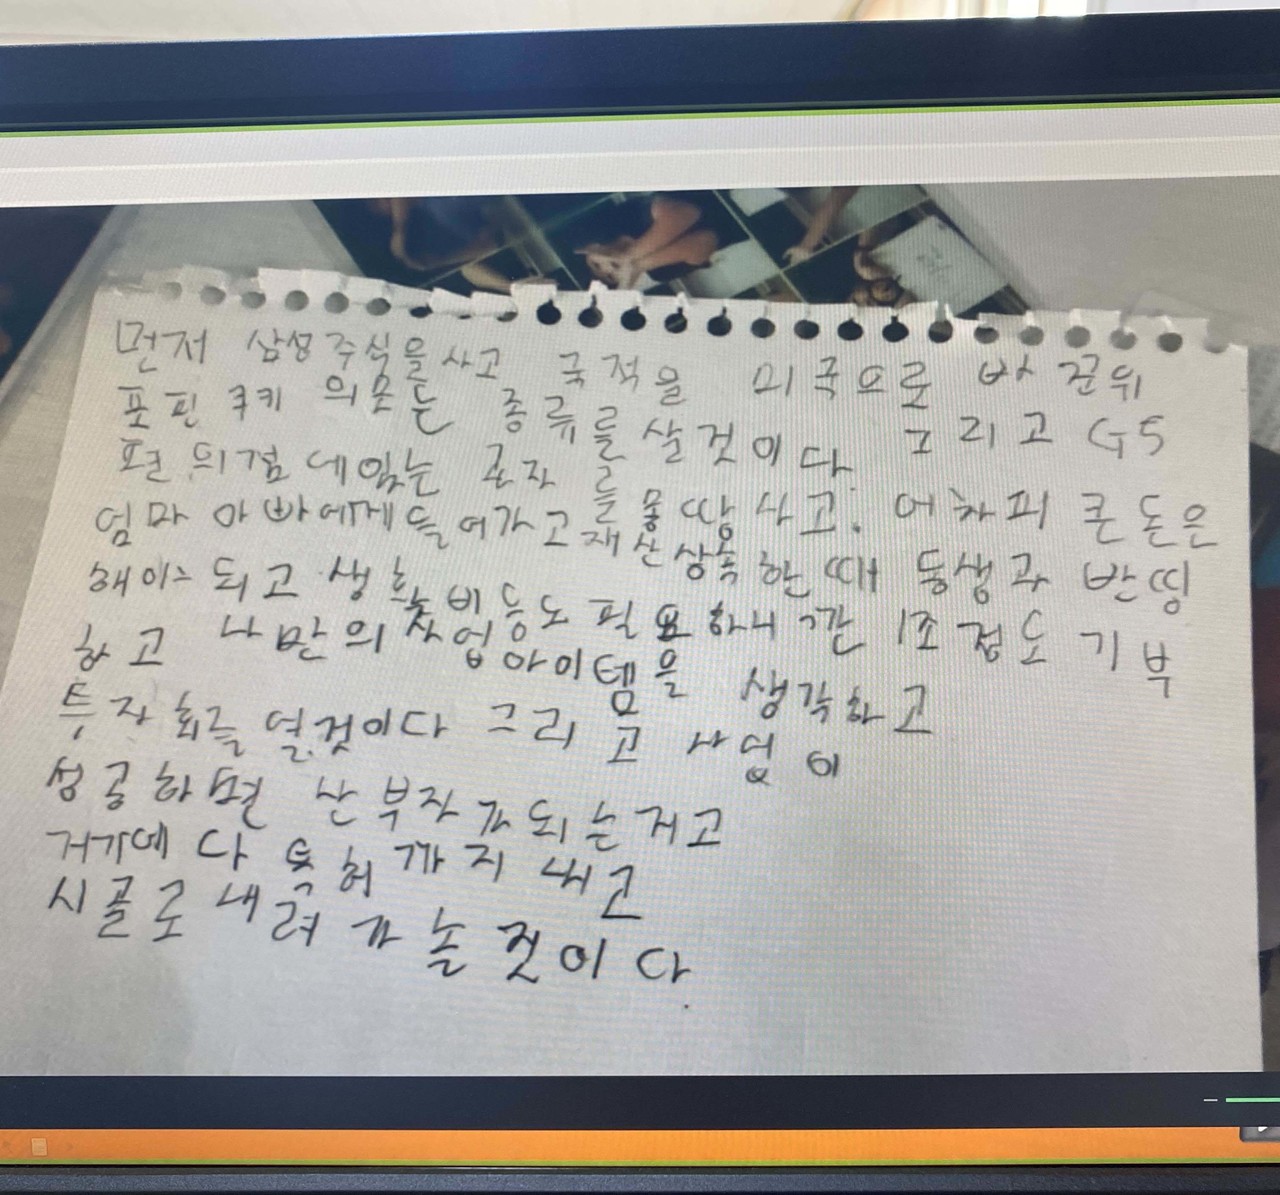 먼저 삼성주식을 사고 국적을 미국으로 바꾼뒤
포핀쿠키 의모든 종류를 살것이다 그리고 GS
편의점에있는 과자를 몽땅사고. 어차피 큰돈은
엄마 아빠에게 들어가고 재산상속할때 동생과 반띵
해야 되고 생활비등도 필요하니깐 1조정도 기부
하고 나만의 사업아이템을 생각하고
투자회를 열것이다 그리고 사업이
성공하면 난 부자가되는거고
거기에다 특허까지 내고
시골로 내려가 놀것이다.